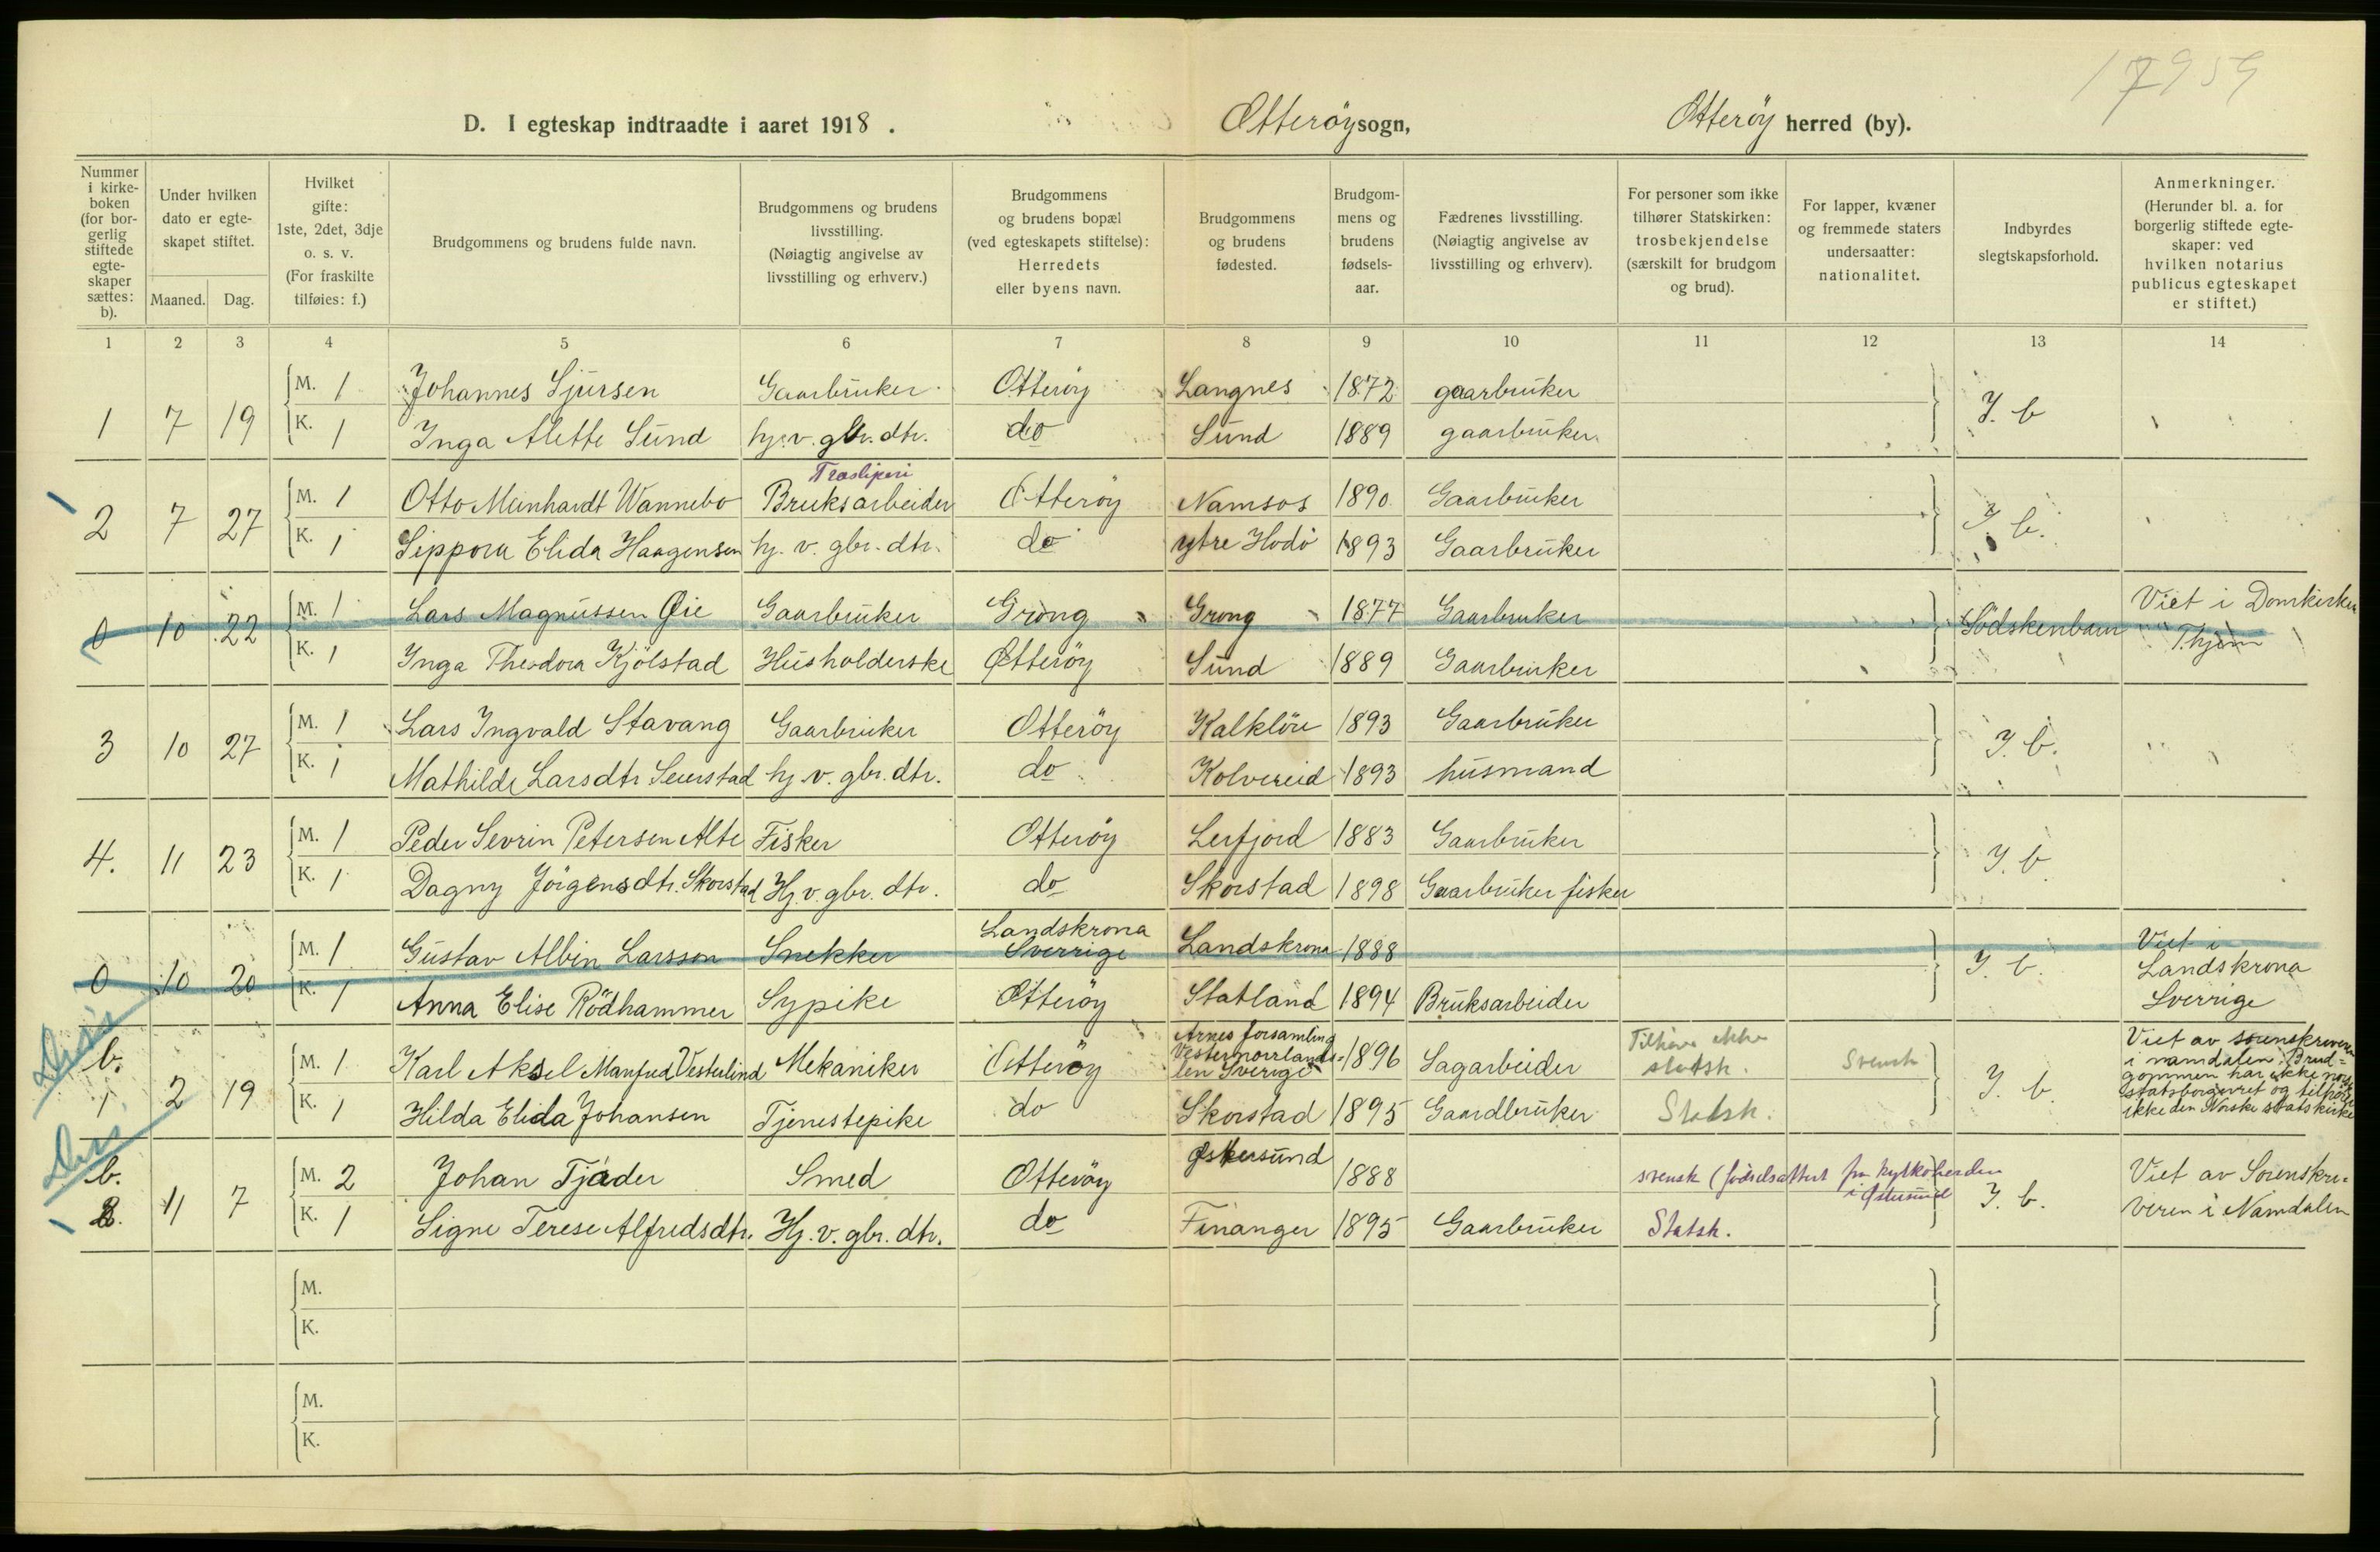 17959
D. I egteskap indtraadte i aaret 1918. Otterøy sogn, Otterøy herred (by).
Nummer i kirke-boken (for bor-gerlig stiftede egte-skaper sættes: b).
Under hvilken dato er egte-skapet stiftet.
Maaned. Dag.
Hvilket gifte: 1ste, 2det, 3dje o. s. v. (For fraskilte tilføies: f.)
Brudgommens og brudens fulde navn.
Brudgommens og brudens livsstilling. (Nøiagtig angivelse av livsstilling og erhverv.)
Brudgommens og brudens bopæl (ved egteskapets stiftelse): Herredets eller byens navn.
Brudgommens og brudens fødested.
Brudgom-mens og brudens fødsels-aar.
Fædrenes livsstilling. (Nøiagtig angivelse av livsstilling og erhverv).
For personer som ikke tilhører Statskirken: trosbekjendelse (særskilt for brudgom og brud).
For lapper, kvæner og fremmede staters undersaatter: nationalitet.
Indbyrdes slegtskapsforhold.
Anmerkninger. (Herunder bl. a. for borgerlig stiftede egte-skaper: ved hvilken notarius publicus egteskapet er stiftet.)
1 2 3 4 5 6 7 8 9 10 11 12 13 14
M. 1 Johannes Sjursen Gaarbruker Otterøy Langnes 1872 gaarbruker
1 7 19 J. b
K. 1 Inga Alette Sund hj. v. gbr. dtr. do Sund 1889 gaarbruker
Træsliperi
M. 1 Otto Meinhardt Wannebo Bruksarbeider Otterøy Namsos 1890 Gaarbruker
2 7 27 J. b.
K. 1 Sippora Elida Haagensen hj. v. gbr. dtr. do ytre Hodø 1893 Gaarbruker
M. 1 Lars Magnussen Øie Gaarbruker Grong Grong 1877 Gaarbruker Viet i Domkirken
0 10 22 Södskenbarn Thjem
K. 1 Inga Theodora Kjölstad Husholderske Otterøy Sund 1889 Gaarbruker
M. 1 Lars Ingvald Stavang Gaarbruker Otterøy 1893 Gaarbruker
3 10 27 J. b.
K. 1 Mathilde Larsdtr Seierstad hj. v. gbr. dtr. do Kolvereid 1893 husmand
M. 1 Peder Sevrin Petersen Alte Fisker Otterøy Lerfjord 1883 Gaarbruker
4. 11 23 J. b.
K. 1 Dagny Jörgensdtr. Skorstad Hj. v. gbr. dtr. do Skorstad 1898 Gaarbruker fisker
M. 1 Gustav Albin Larsson Snekker Landskrona Sverrige Landskrona 1888 Viet i
0 10 20 J. b. Landskrona
K. 1 Anna Elise Rödhammer Sypike Otterøy Statland 1894 Bruksarbeider Sverrige
b. M. 1 Karl Aksel Manfred Vesterlind Mekaniker Otterøy Arnes forsamling Vesternorrlands len Sverige 1896 Sagarbeider Tilhører ikke statsk. Svensk
1 2 19 J. b. Viet av sorenskriveren i namdalen. Brud-gommen har ikke norsk statsborgerret og tilhører ikke den Norske statskirke
K. 1 Hilda Elida Johansen Tjenestepike do Skorstad 1895 Gaardbruker Statsk.
b. M. 2 Johan Tjäder Smed Otterøy 1888 svensk (fødselsattest fra kyrkoherden i
2. 11 7 J. b. Viet av Sorenskri-veren i Namdalen
K. 1 Signe Terese Alfredsdtr. Hj. v. gbr. dtr. do Finanger 1895 Gaarbruker Statsk.
M.
K.
M.
K.